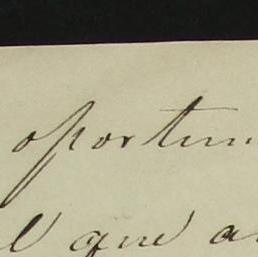 oportun
l que a